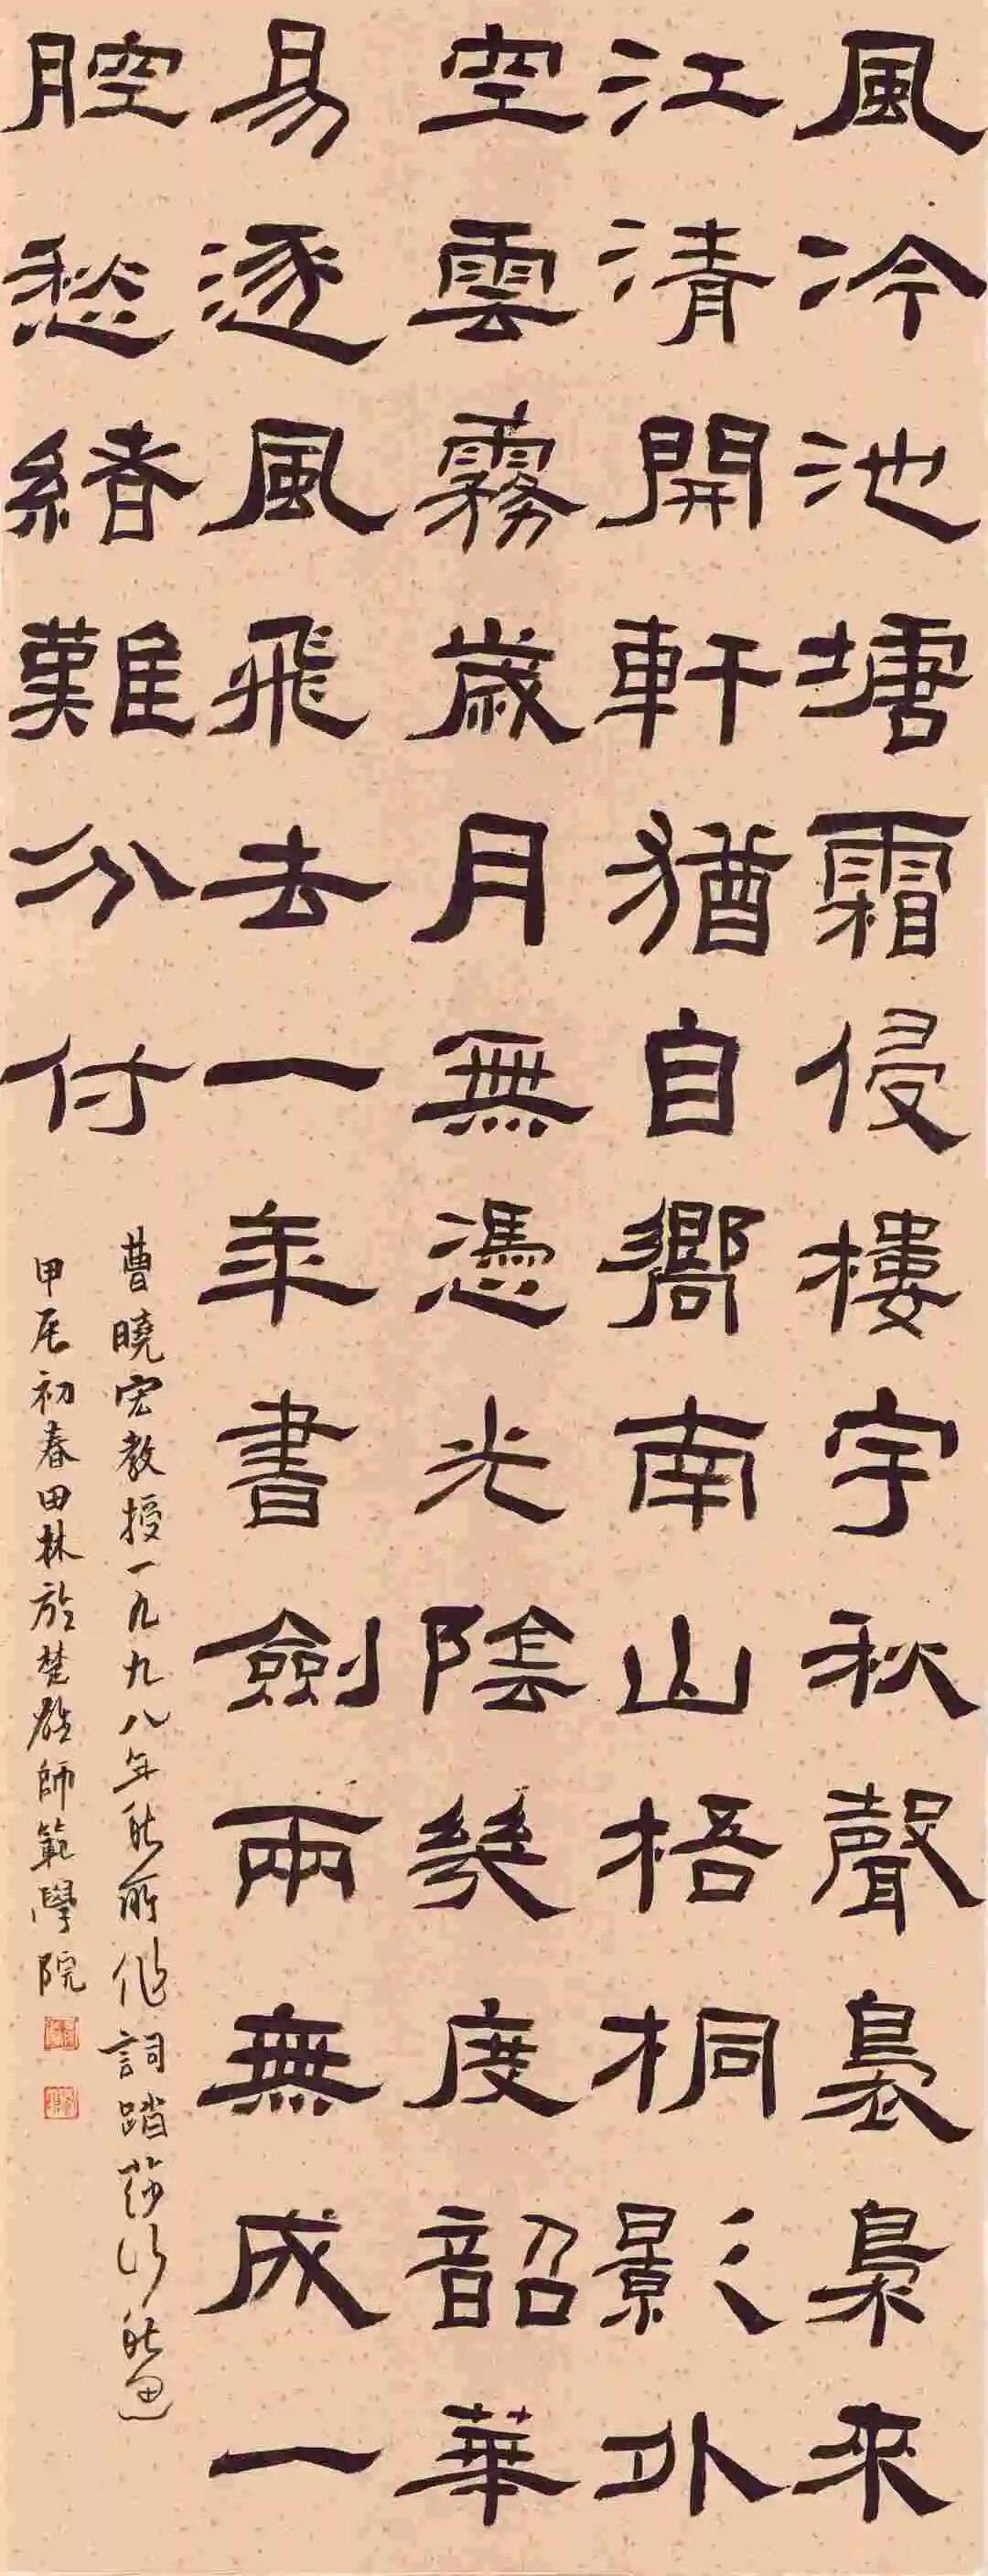 風冷池塘霜侵樓宇秋聲裊梟來
江清開軒猶自嚮南山梧桐影外
空雲霧歲月無憑光陰幾度韶華
易逐風飛去一年書劍兩無成一
腔愁緒難分付
曹曉宏教授一九九八年秋所作詞踏莎行秋思
甲辰初春田林於楚雄師範學院